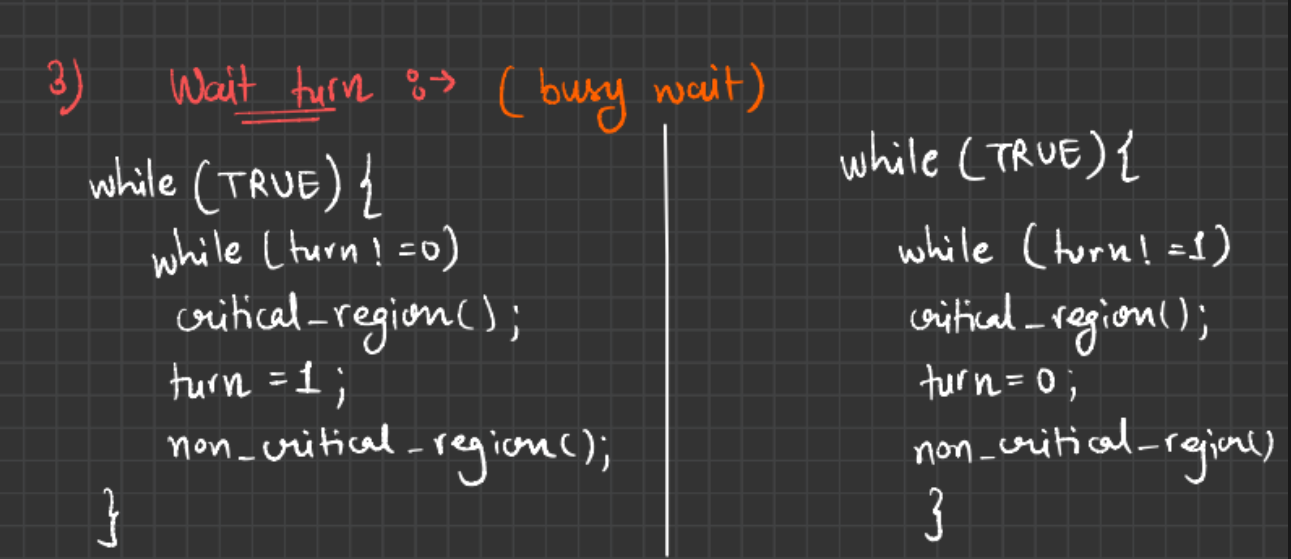 3) Wait turn :→ (busy wait)
while (TRUE) {
while (turn! =0)
critical_region();
turn =1;
non_critical_region();
}
while (TRUE){
while (turn! =1)
critical_region();
turn=0;
non_critical_region()
}